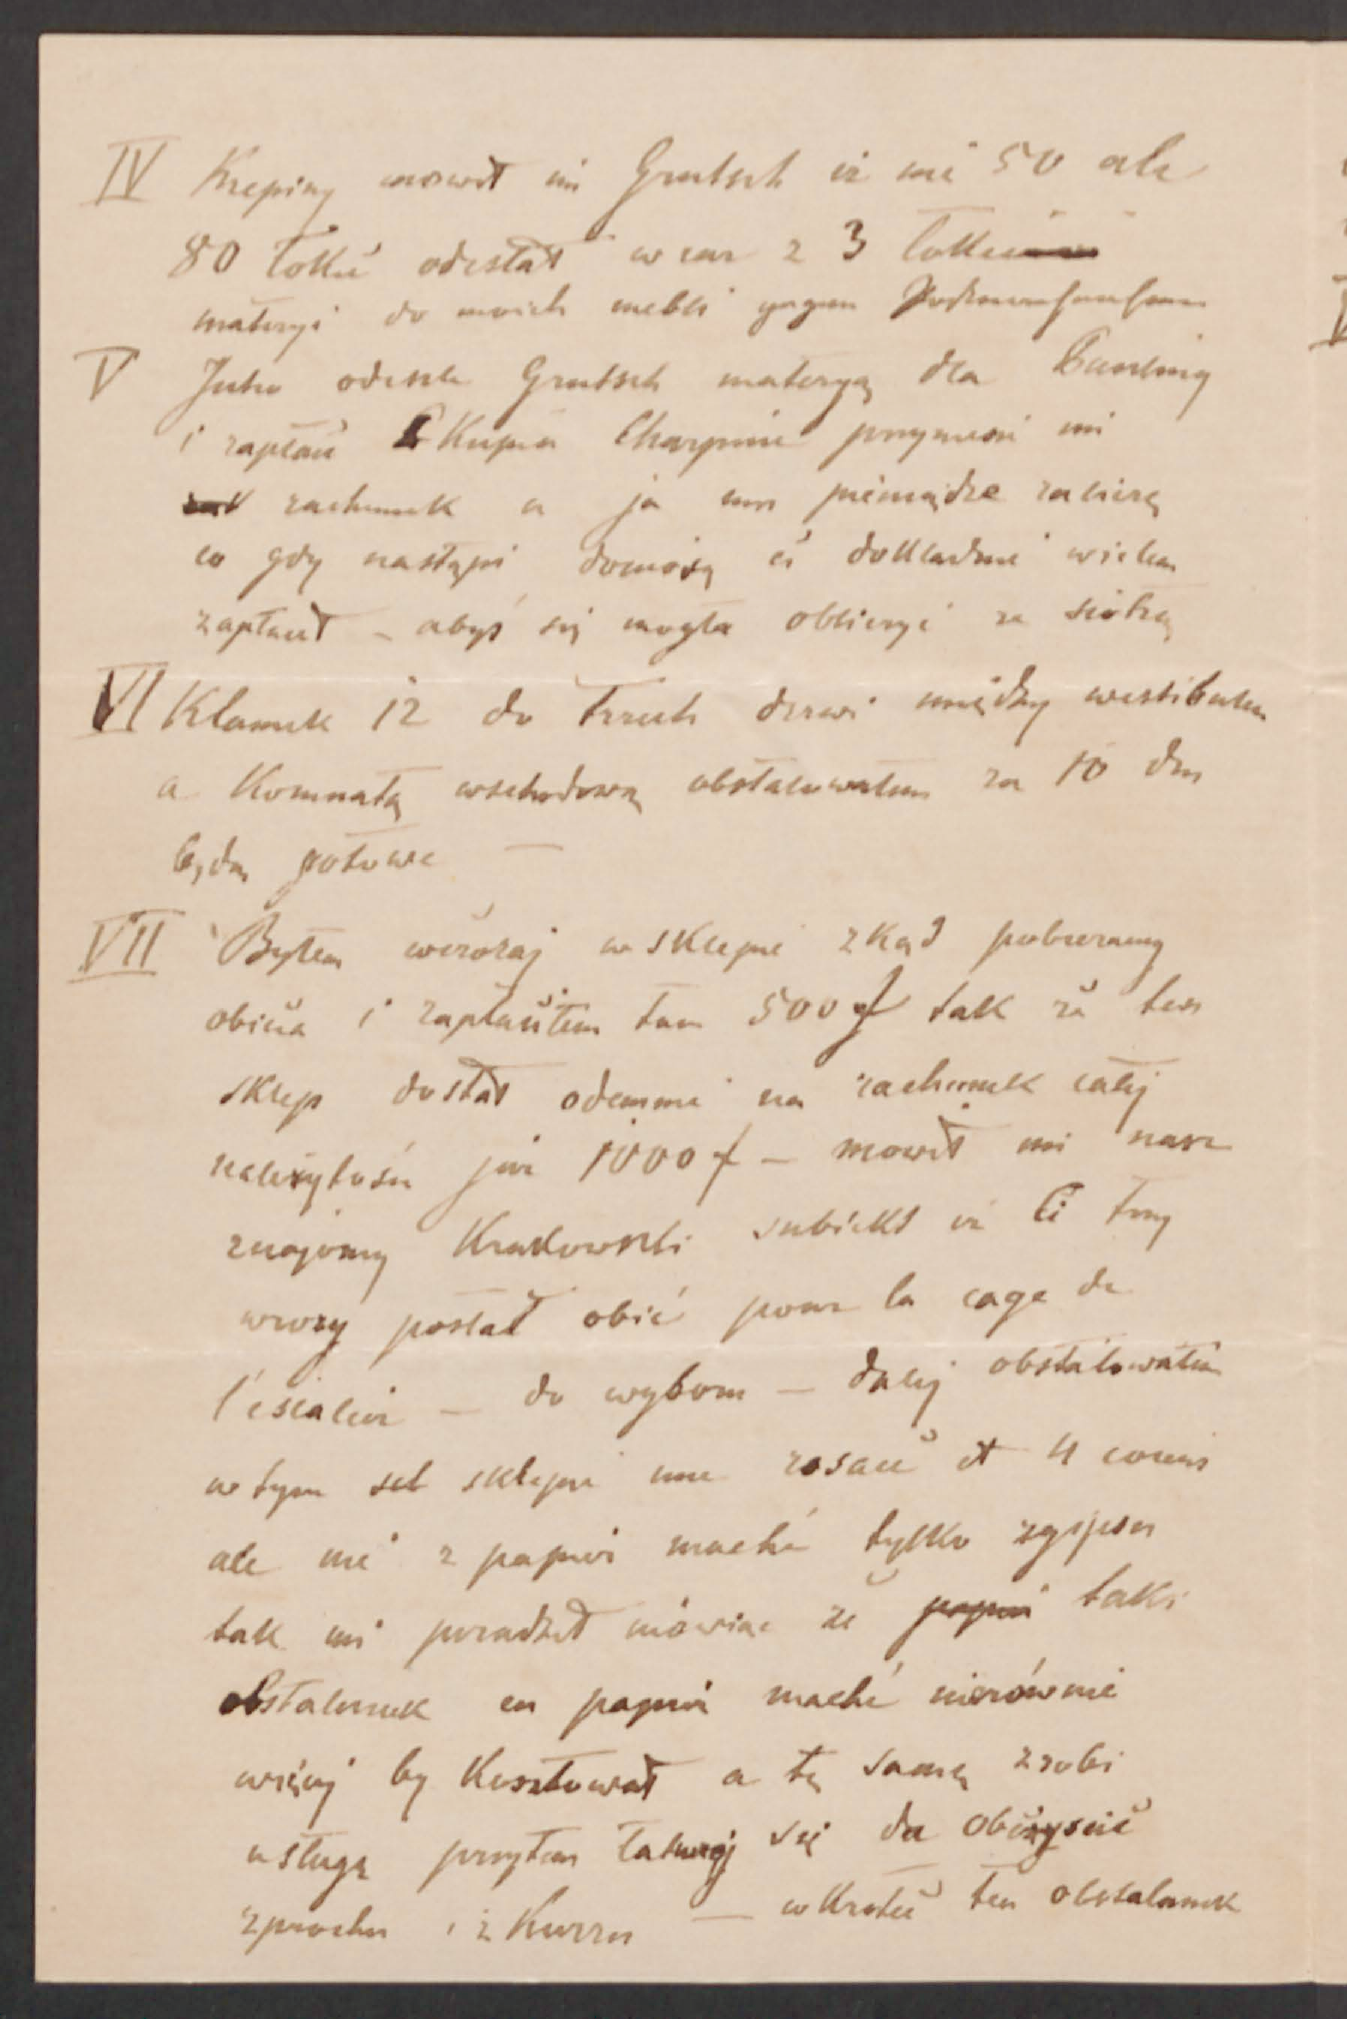 IV Krepiny mowił mi Grutsch iż nie 50 ale
80 łokci odesłał w raz z 3 łokci
materyi do moich mebli
V Jutro odeszle Grutsch materyą dla
i zapłaci Charpiu przyniesie mi
rachunek a ja mu pieniądze zabiorę
co gdy nastąpi doniosę ci dokładnie wielem
zapłacił – abyś się mogła obliczyć za siotrą
VI Klamek 12 do trzech drzwi między westibulem
a Komnatą wschodową obstalowałem za 10 dni
będą gotowe —
VII Byłem wczoraj w sklepie zkąd pobieramy
obicia i zapłaciłem tam 500 f tak że ten
sklep dostał odemnie na rachunek całej
należytości już 1000 f – mowił mi nasz
znajomy Krakowski subiekt iż Ci trzy
wzory posłał obić pour la cage de
l'escalier – do wyboru – dalej obstalowałem
w tym sklepie une rosace et 4 coins
ale nie z papier maché tylko z gipsu
tak mi poradził mówiac że papier taki
obstalunek en papier maché nierównie
więcej by Kosztował a tę samą zrobi
usługę przytem łatwiej się da obczyscić
z prochu i z Kurzu — w Krotce ten obstalunek